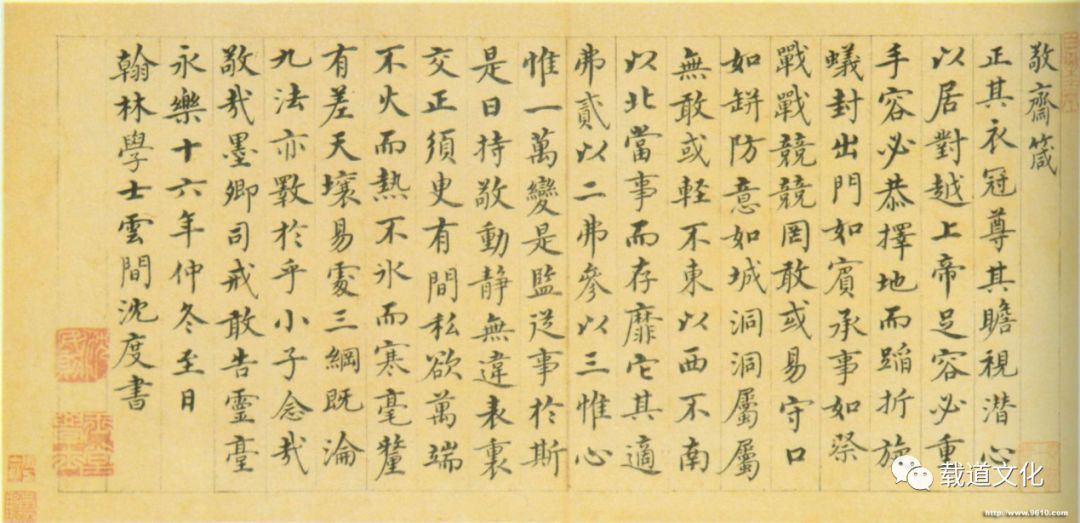 敬齋箴
正其衣冠尊其瞻視潜心
以居對越上帝足容必重
手容必恭擇地而蹈折旋
蟻封出門如賓承事如祭
戰戰競競罔敢或易守口
如缾防意如城洞洞屬屬
無敢或輕不東以西不南
以北當事而存靡它其適
弗貳以二弗參以三惟心
惟一萬變是監从事於斯
是日持敬動静無違表裏
交正須臾有間私欲萬端
不火而熱不氷而寒毫釐
有差天壤易處三綱既淪
九法亦斁於乎小子念哉
敬哉墨卿司戒敢告靈臺
永樂十六年仲冬至日
翰林學士雲間沈度書
载道文化
http://www.9610.com